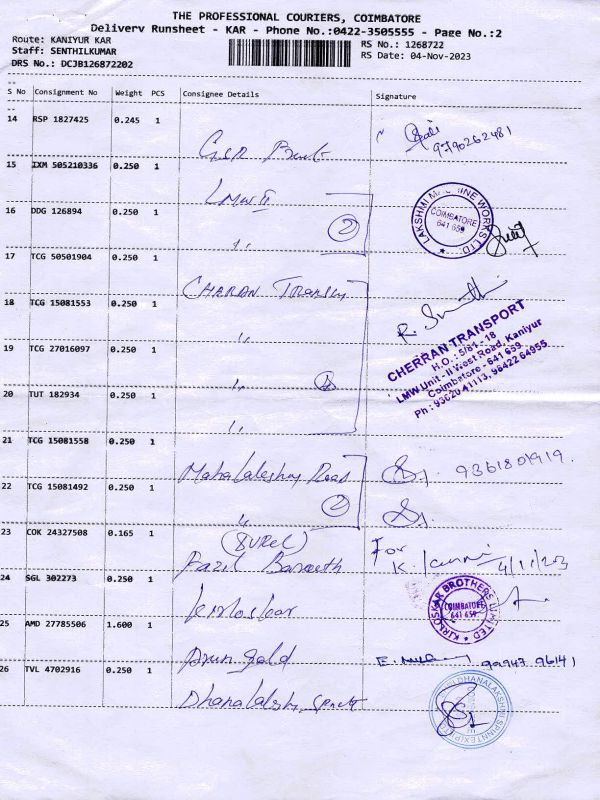 THE PROFESSIONAL COURIERS, COIMBATORE
Delivery Runsheet - KAR - Phone No.:0422-3505555 - Page No.:2
Route: KANIYUR KAR
RS No.: 1268722
Staff: SENTHILKUMAR
RS Date: 04-Nov-2023
DRS No.: DCJB126872202
S No Consignment No Weight PCS Consignee Details Signature
14 RSP 1827425 0.245 1
9790262481
15 IXM 505210336 0.250 1
LMW II
16 DDG 126894 0.250 1
" 2
LAKSHMI MACHINE WORKS LTD
COIMBATORE
641 659
17 TCG 50501904 0.250 1
CHARAN
18 TCG 15081553 0.250 1
"
CHERRAN TRANSPORT
H.O.: 5/81 - 18
LMW Unit - II West Road, Kaniyur
Coimbatore - 641 659.
Ph : 93620 41113, 98422 64955
19 TCG 27016097 0.250 1
"
20 TUT 182934 0.250 1
"
21 TCG 15081558 0.250 1
9361801919.
22 TCG 15081492 0.250 1
" 2
23 COK 24327508 0.165 1
(SUREL)
Fazil
For
24 SGL 302273 0.250 1
Kirloskar
KIRLOSKAR BROTHERS LIMITED
COIMBATORE
641 659
25 AMD 27785506 1.600 1
Arun gold
99947 96141
26 TVL 4702916 0.250 1